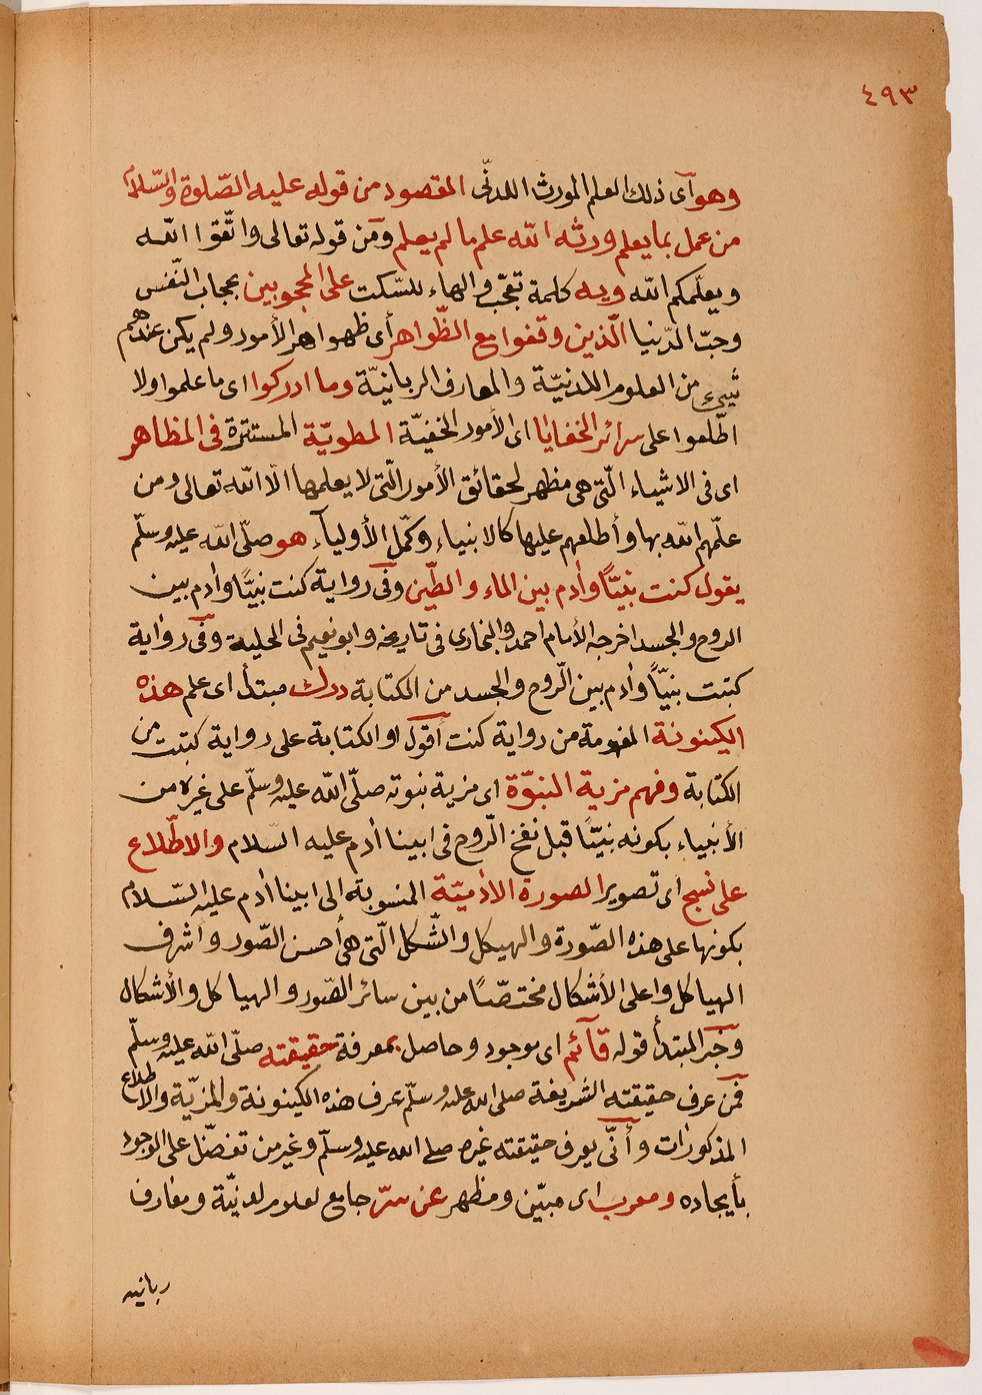 ٤٩٣
وهو أى ذلك العلم المورث اللدنّى المقصود من قوله عليه الصّلوة والسّلام
من عمل بما يعلم ورثه الله علم ما لم يعلم ومن قوله تعالى واتّقوا الله
ويعلّمكم الله ويه كلمة تعجّب والهاء للسّكت على المحجوبين بحجاب النّفس
وحبّ الدّنيا الّذين وقفوا مع الظّواهر أى ظهواهر الأمور ولم يكن عندهم
شيئ من العلوم اللدنيّة والمعارف الربانيّة وما ادركوا اى ما علموا ولا
اطّلعوا على سرائر الخفايا اى الأمور الخفيّة المطويّة المستترة فى المظاهر
اى فى الاشياء الّتى هى مظهر لحقائق الأمور الّتى لا يعلمها الّا الله تعالى ومن
علّمهم الله بها وأطلعهم عليها كالانبياء وكمّل الأوليآء هو صلّى الله عليه وسلّم
يقول كنت نبيّاً وآدم بين الماء والطّين وفى رواية كنت نبيّاً وآدم بين
الروح والجسد اخرجه الأمام احمد والبخارى فى تاريخه وابو نعيم فى الحلية وفى رواية
كتبت نبيّاً وآدم بين الّروح والجسد من الكتابة درك مبتدأ اى علم هذه
الكينونة المفهومة من رواية كنت أقول او الكتابة على رواية كتبت من
الكتابة وفهم مزية النبوّة اى مزية نبوته صلّى الله عليه وسلّم على غيره من
الأنبياء بكونه نبيّاً قبل نفخ الّروح فى ابينا آدم عليه السّلام والاطّلاع
على نسج اى تصوير الصورة الآدميّة المنسوبة الى ابينا آدم عليه السّلام
بكونها على هذه الصّورة والهيكل والشّكل الّتى هى أحسن الصّور واشرف
الهياكل واعلى الأشكال مختصّاً من بين سائر الصّور والهياكل والأشكال
وخبر المبتدأ قوله قآئم اى موجود وحاصل بمعرفة حقيقته صلّى الله عليه وسلّم
فمن عرف حقيقته الشريفة صلى الله عليه وسلّم عرف هذه الكينونة والمزيّة والاطلاع
المذكورات وأنّى يعرف حقيقته غيره صلى الله عليه وسلّم وغير من تفضّل على الوجود
بأيجاده ومعرب اى مبيّن ومظهر عن سرّ جامع لعلوم لدنيّة ومعارف
ربانيه